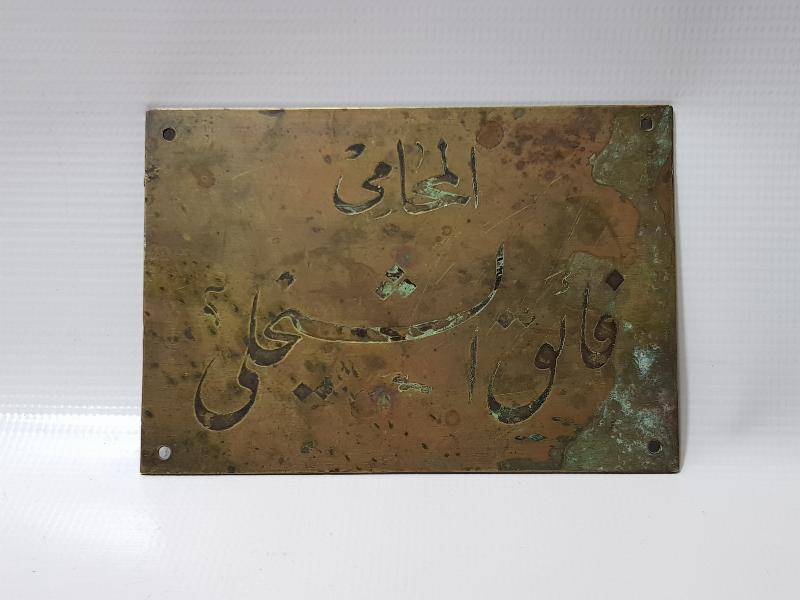 المحامي
فائق الشيخلي